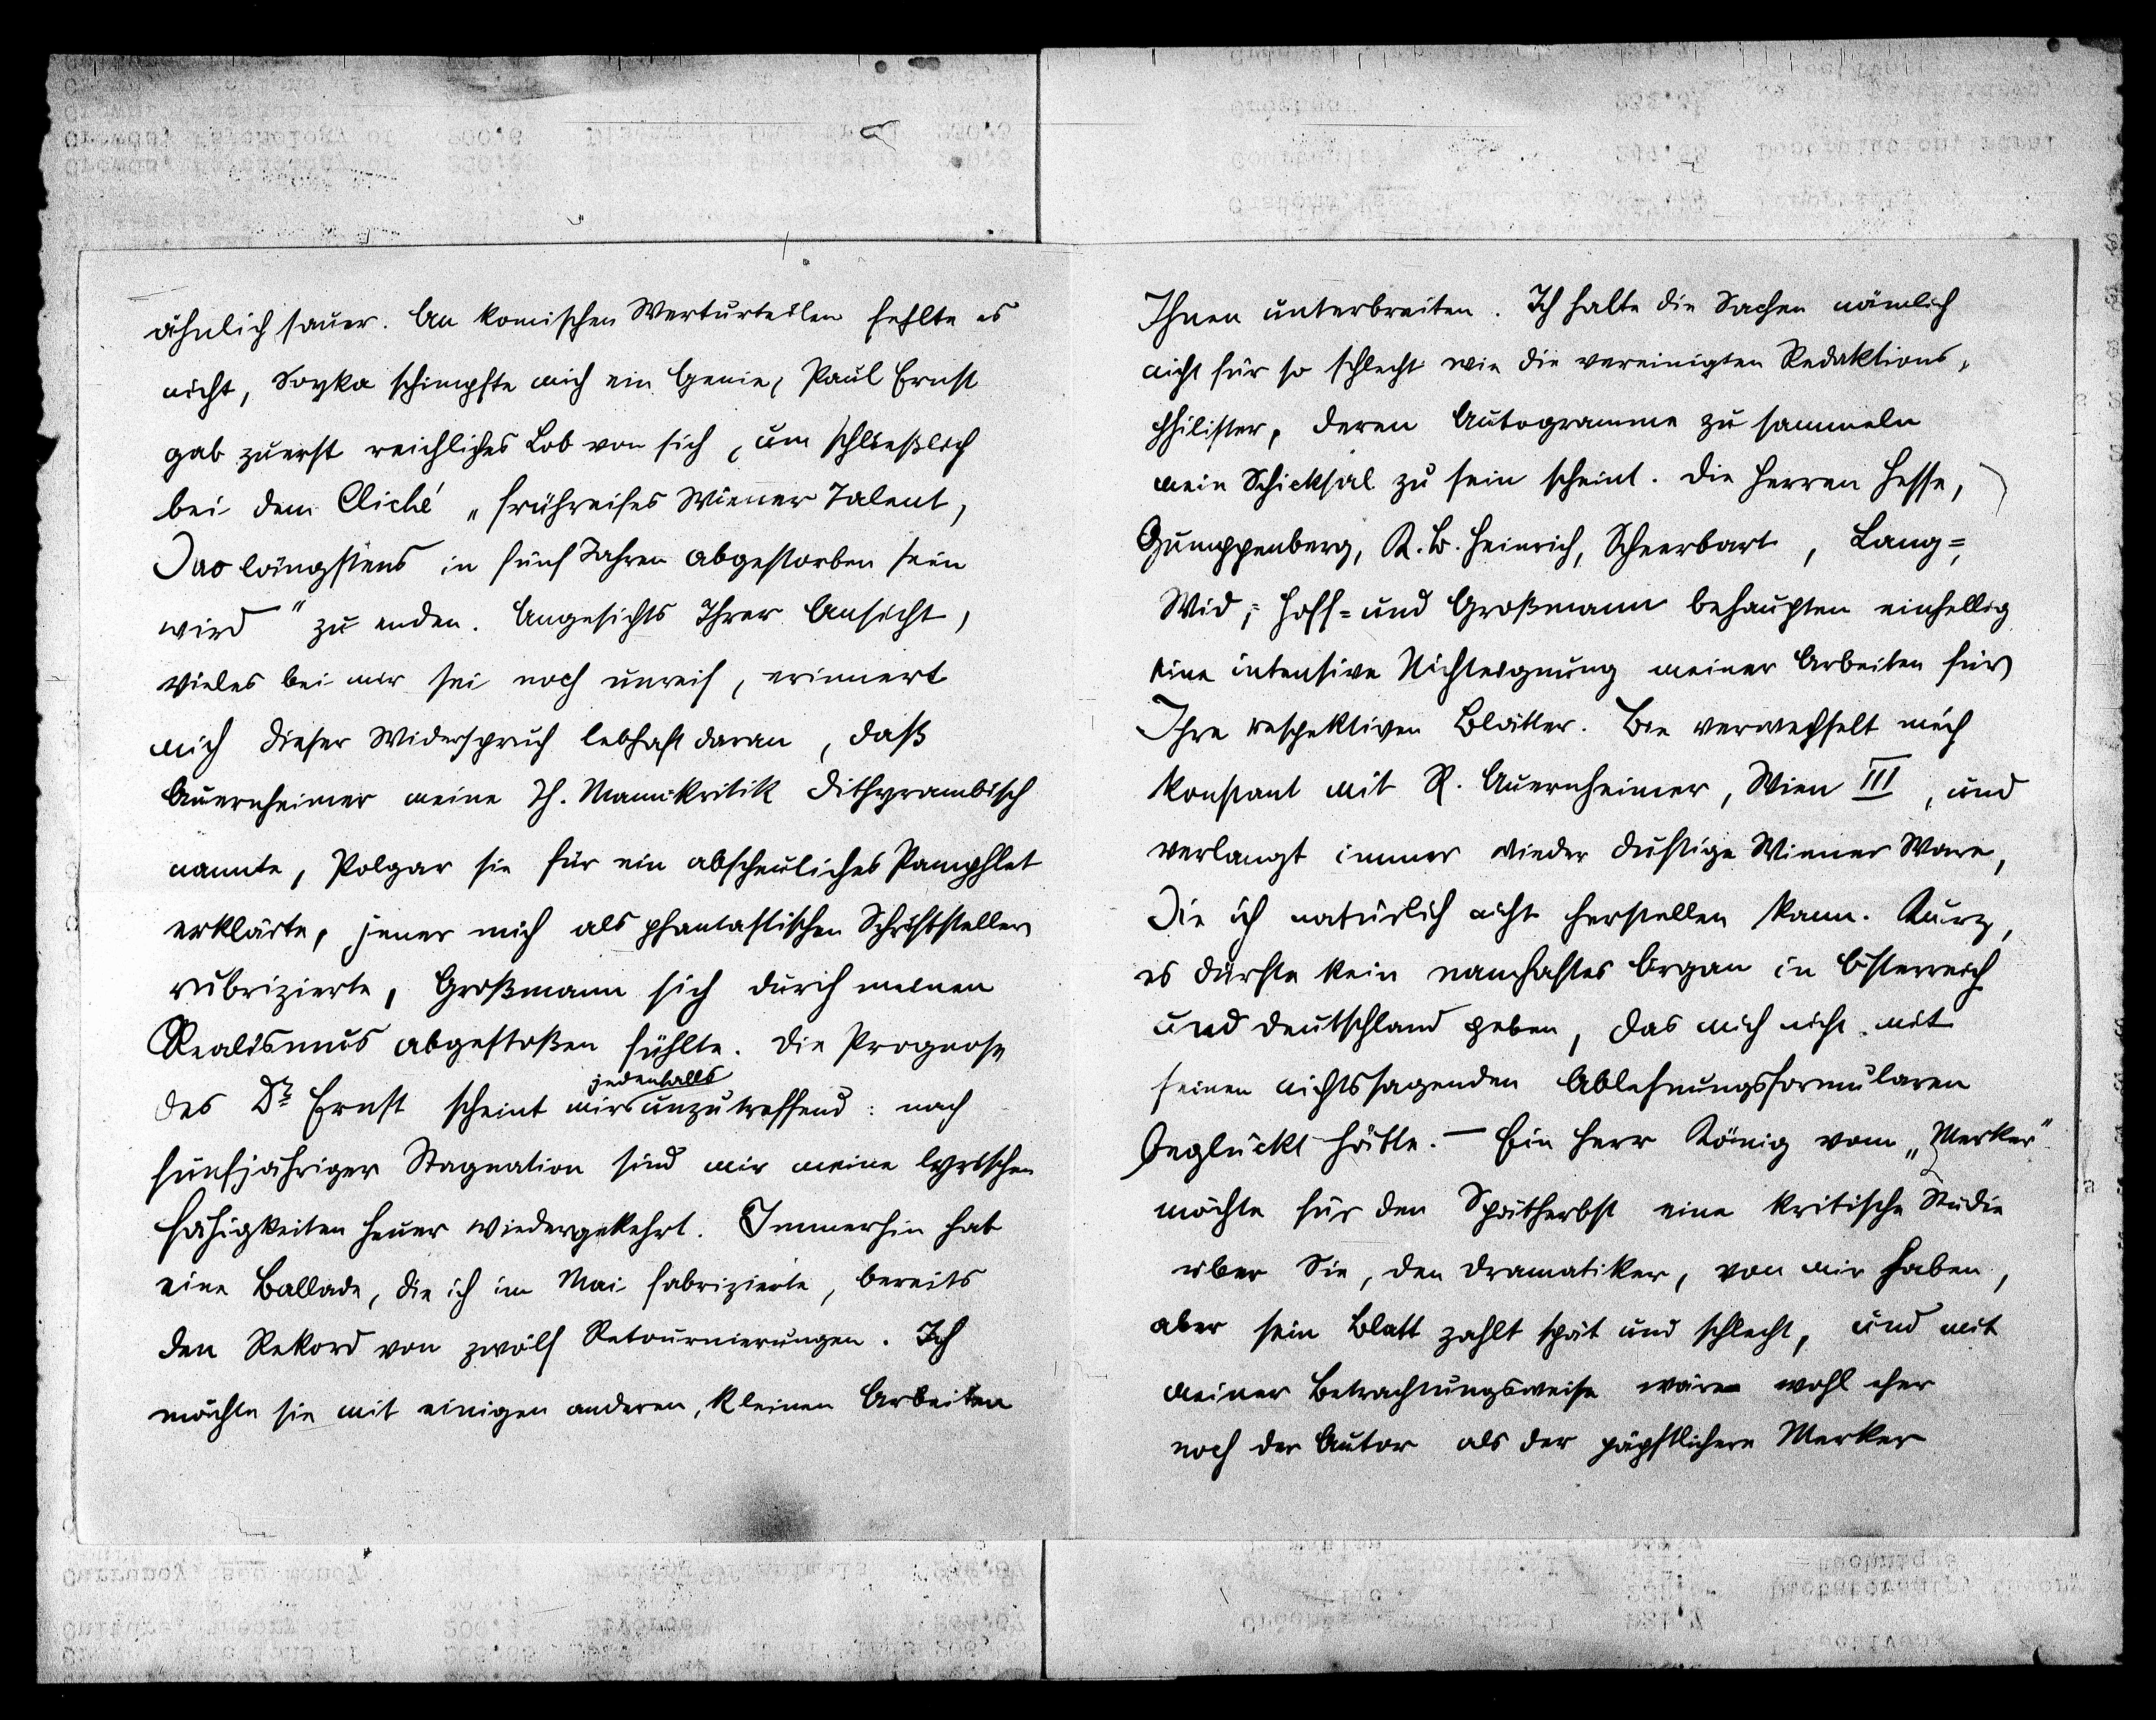 ähnlich sauer. An komischen Werturteilen fehlte es
nicht, Soyka schimpfte mich ein Genie, Paul Ernst
gab zuerst reichliches Lob von sich, um schließlich
bei dem Cliché „frühreifes Wiener Talent,
das längstens in fünf Jahren abgestorben sein
wird" zu enden. Angesichts Ihrer Ansicht,
vieles bei mir sei noch unreif, erinnert
mich dieser Widerspruch lebhaft daran, daß
Auernheimer meine Th. Mannkritik dithyrambisch
nannte, Polgar sie für ein abscheuliches Pamphlet
erklärte, jener mich als phantastischen Schriftsteller
rubrizierte, Großmann sich durch meinen
Realismus abgestoßen fühlte. Die Prognose
jedenfalls
des Dr Ernst scheint mir unzutreffend: nach
fünfjähriger Stagnation sind mir meine lyrischen
Fähigkeiten heuer wiedergekehrt. Immerhin hat
eine Ballade, die ich im Mai fabrizierte, bereits
den Rekord von zwölf Retournierungen. Ich
möchte sie mit einigen anderen, kleinen Arbeiten
Ihnen unterbreiten. Ich halte die Sachen nämlich
nicht für so schlecht wie die vereinigten Redaktions-
philister, deren Autogramme zu sammeln
mein Schicksal zu sein scheint. Die Herren Hesse,
Gumppenberg, K. B. Heinrich, Scheerbart, Lang=,
Wid-, Hoff= und Großmann behaupten einhellig
eine intensive Nichteignung meiner Arbeiten für
Ihre respektiven Blätter. Bie verwechselt mich
konstant mit R. Auernheimer, Wien III, und
verlangt immer wieder duftige Wiener Ware,
die ich natürlich nicht herstellen kann. Kurz,
es dürfte kein namhaftes Organ in Österreich
und Deutschland geben, das mich nicht mit
seinen nichtssagenden Ablehnungsformularen
beglückt hätte. — Ein Herr König vom „Merker"
möchte für den Spätherbst eine kritische Studie
über Sie, den Dramatiker, von mir haben,
aber sein Blatt zahlt spät und schlecht, und mit
meiner Betrachtungsweise wäre wohl eher
noch der Autor als der päpstlichere Merker